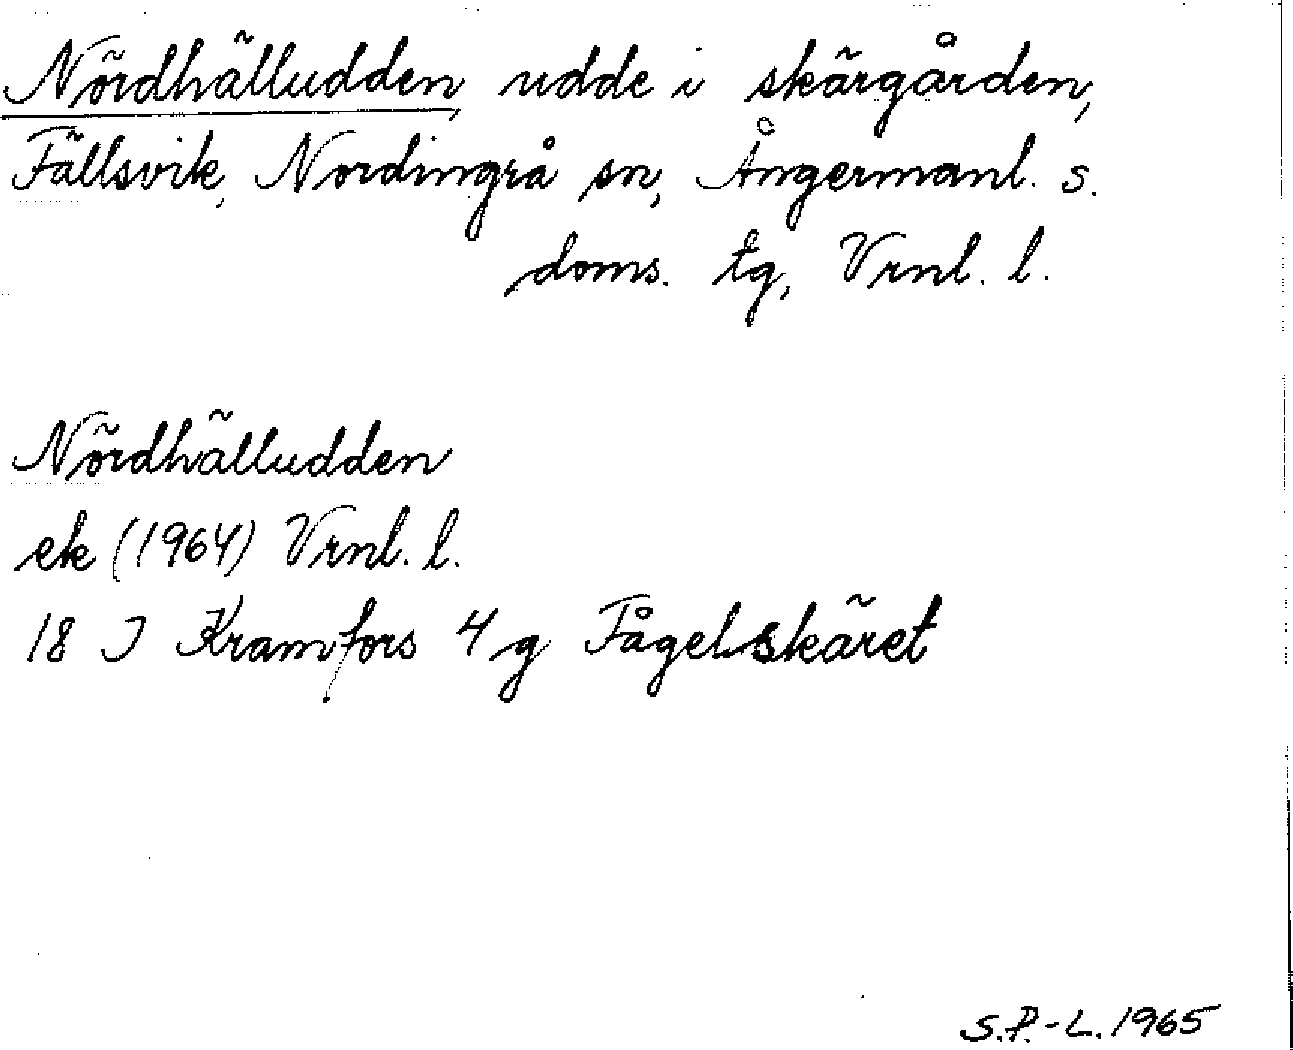 Nördhälludden, udde i skärgården,
Fällsvik, Nordingrå sn, Ångermanl. s.
doms. tg, Vrnl. l.
Nördhälludden
ek (1964) Vrnl. l.
18 J Kramfors 4 g Fågelskäret
S.P.-L. 1965